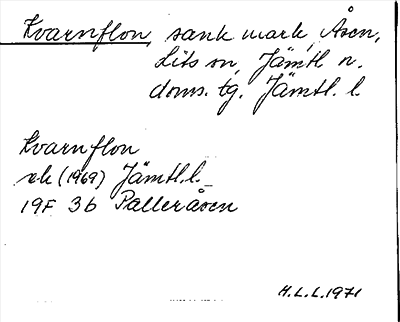 Kvarnflon, sank mark, Åsen,
Lits sn, Jämtl n.
doms. tg. Jämtl. l.
Kvarnflon
ek (1969) Jämtl. l.
19F 3b Palleråsen
H.L.L. 1971